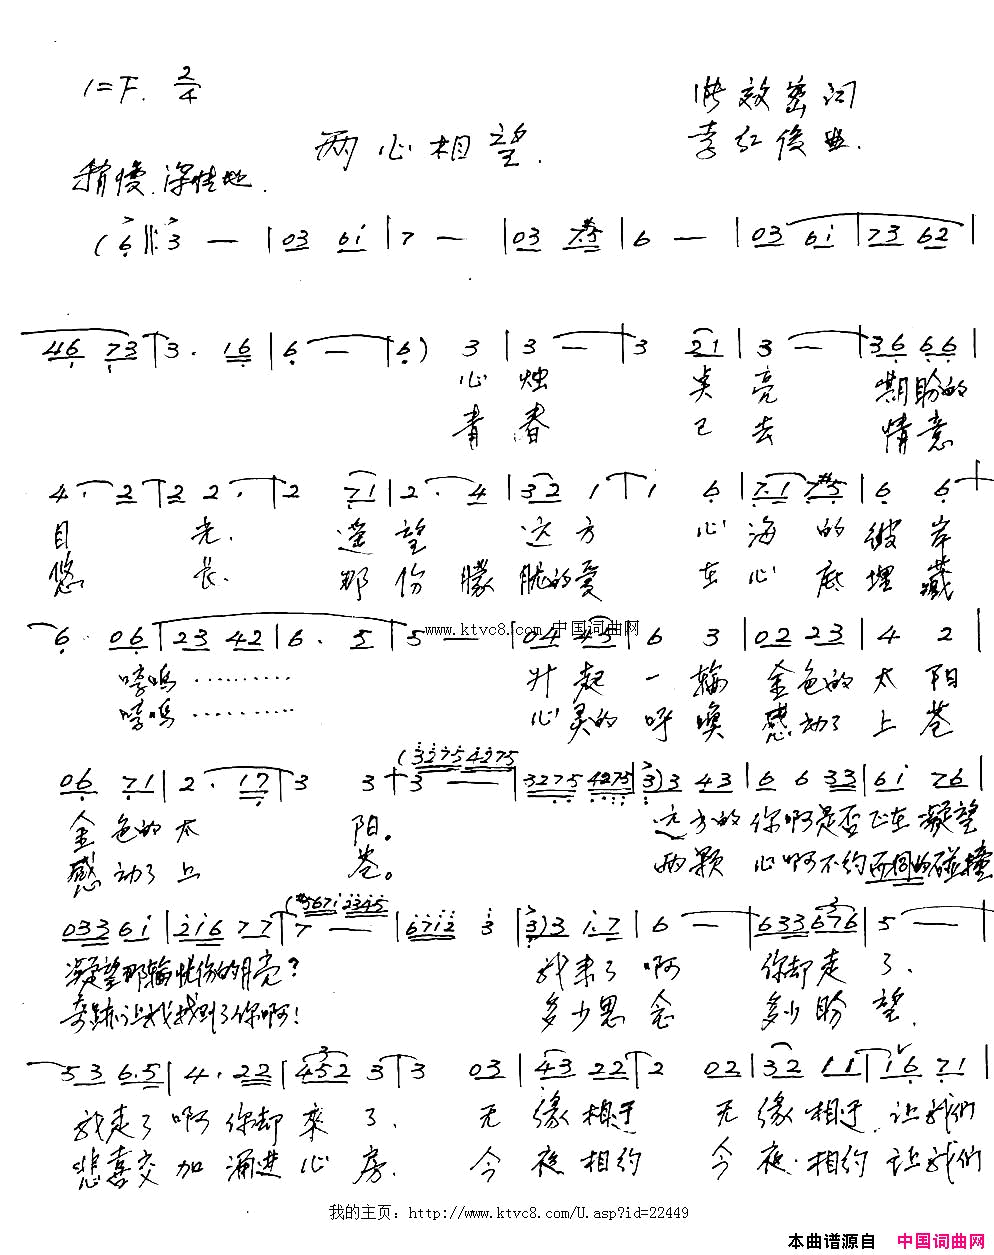 1=F. 2/4
两心相望.
李红俊曲.
稍慢.深情地.
(6 ‖: 3 — | 03 61 | 7 — | 03 7#5 | 6 — | 03 61 | 73 62 |
46 73 | 3 . 16 | 6 — | 6 ) 3 | 3 — | 3 21 | 3 — | 36 66 |
心 烛 点 亮 期盼的
青 春 已 去 情意
4 . 2 | 2 2 . | 2 71 | 2 . 4 | 32 1 | 1 6 | 7.1 7#5 | 6 6 |
目 光. 遥望 这方 心海的彼岸
悠 长. 那份朦胧的爱 在心底埋藏
6 . 06 | 23 42 | 6 . 5 | 5 — | 04 45 | 6 3 | 02 23 | 4 2 |
www.ktvc8.com 中国词曲网
嗚………
升起一輪 金色的太阳
嗚………
心灵的呼唤 感动了上苍
06 71 | 2 . 17 | 3 3 | 3 — | 3275 4275 | 3 ) 3 43 | 6 6 33 | 61 76 |
(3275 4275
金色的太 阳。 这方的你啊是否正在凝望
感动了上 苍。 两颗心啊不约而同的碰撞
033 61 | 216 77 | 7 — | 6712 3 | 3 ) 3 1.7 | 6 — | 633 676 | 5 — |
(#5671 2345
凝望那輪忧伤的月亮? 我来了啊 你却走了.
奇迹让我找到了你啊! 多少思念 多少盼望.
53 6.5 | 4 . 22 | 452 3 | 3 03 | 43 22 | 2 02 | 32 11 | 16 71 |
我走了啊你却來了. 无缘相逢 无缘相逢.让我们
悲喜交加涌进心房. 今夜相约 今夜.相约让我们
我的主页: http://www.ktvc8.com/U.asp?id=22449
本曲谱源自 中国词曲网